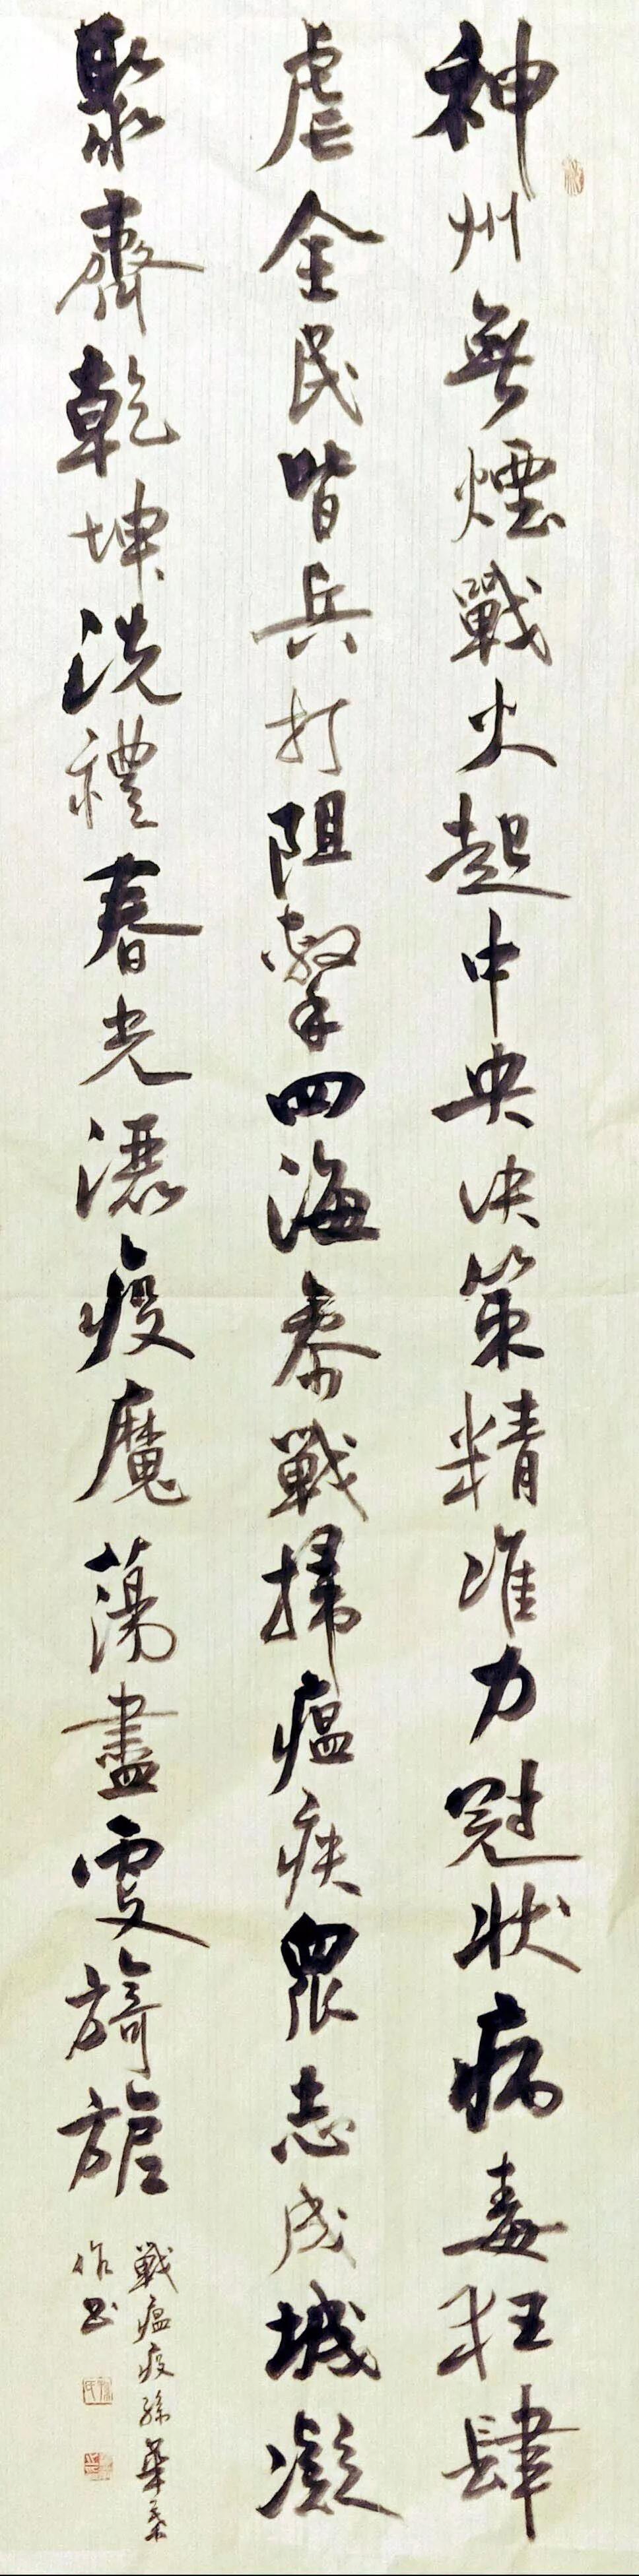 神州無煙戰火起中央決策精准力冠狀病毒狂肆
虐全民皆兵打阻擊四海參戰掃瘟疾眾志成城凝
聚齊乾坤洗禮春光灑疫魔蕩盡雯旖旎
戰瘟疫孫華
作書